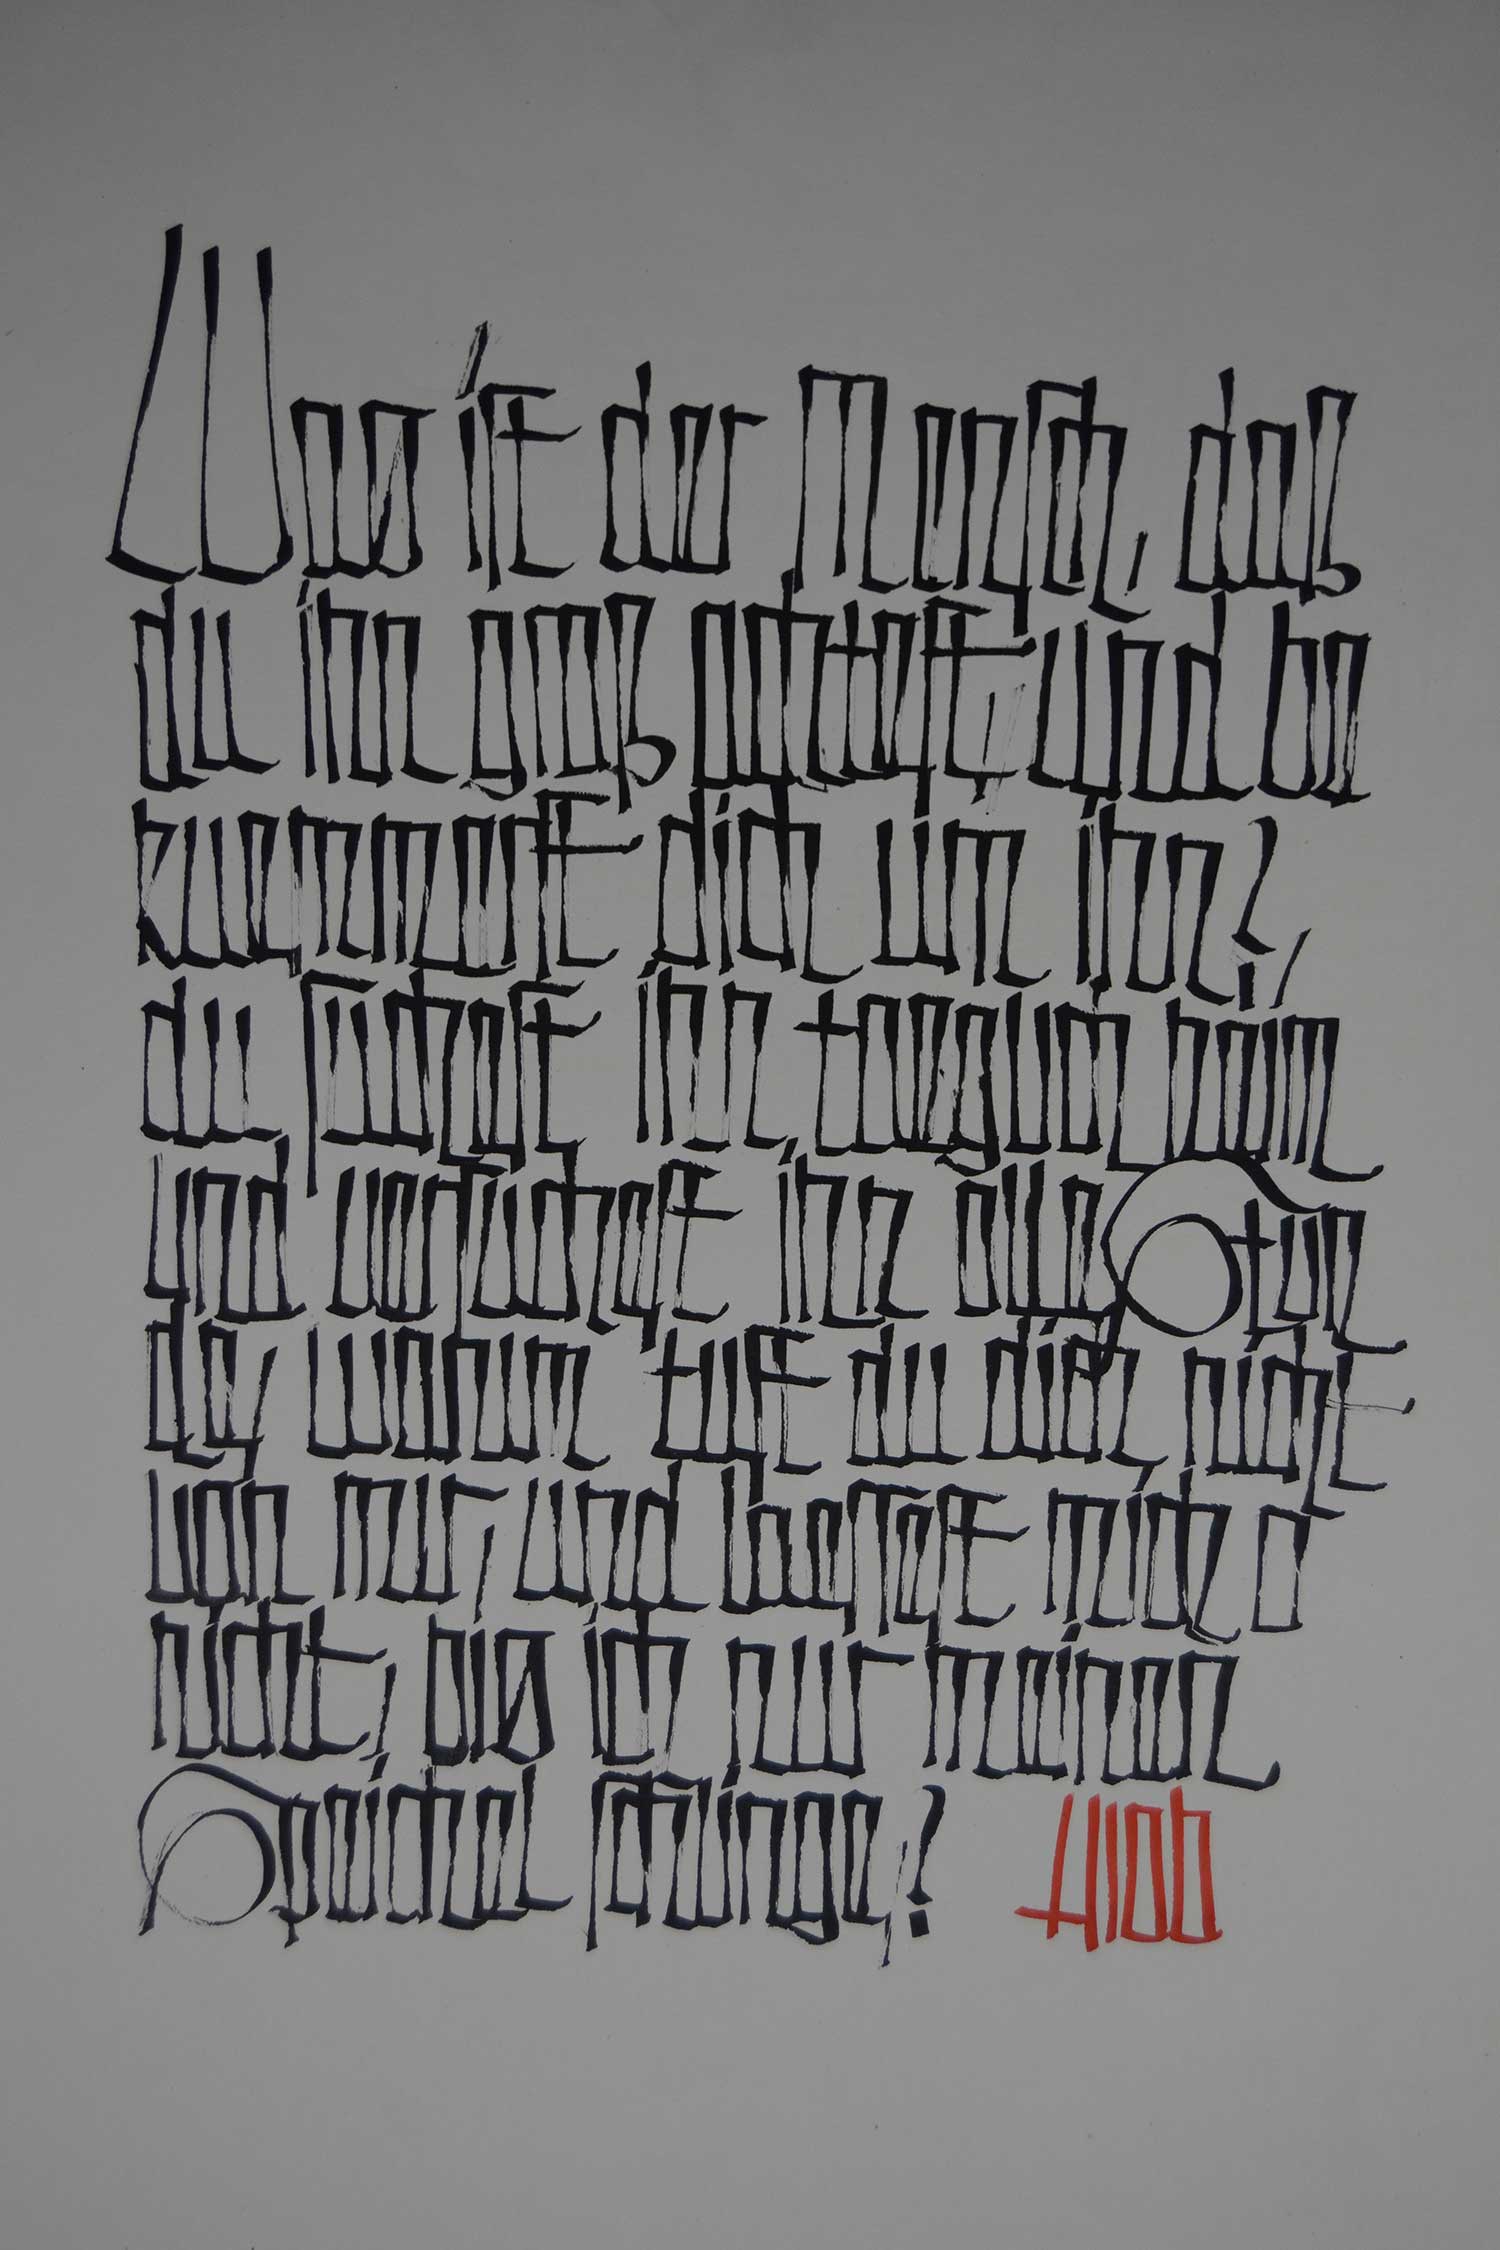 Was ist der Mensch, daß
du ihn groß achtest und be
kuemmerst dich um ihn?
du suchest ihn taeglich heim
und versuchest ihn alle Stun
de, warum tust du dich nicht
von mir, und laessest mich
nicht, bis ich nur meinen
Speichel schlinge? Hiob